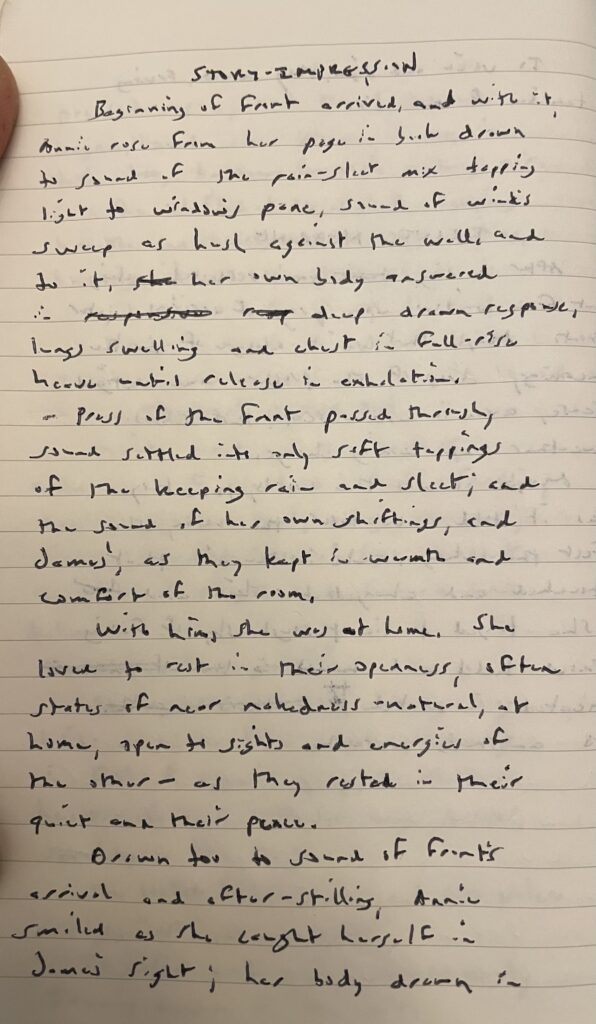 STORY-IMPRESSION
Beginning of front arrived, and with it,
Annie rose from her page in book drawn
to sound of the rain-sleet mix tapping
light to window's pane, sound of wind's
sweep as hush against the wall, and
to it, she her own body answered
in responsive resp deep drawn response,
lungs swelling and chest in full-rise
heave until release in exhalation.
- Press of the front passed through,
sound settled into only soft tappings
of the keeping rain and sleet; and
the sound of her own shiftings, and
James', as they kept in warmth and
comfort of the room.
With him, she was at home. She
loved to rest in their openness, often
states of near nakedness - natural, at
home, open to sights and energies of
the other - as they rested in their
quiet and their peace.
Drawn too to sound of front's
arrival and after-stilling, Annie
smiled as she caught herself in
James' sight; her body drawn in